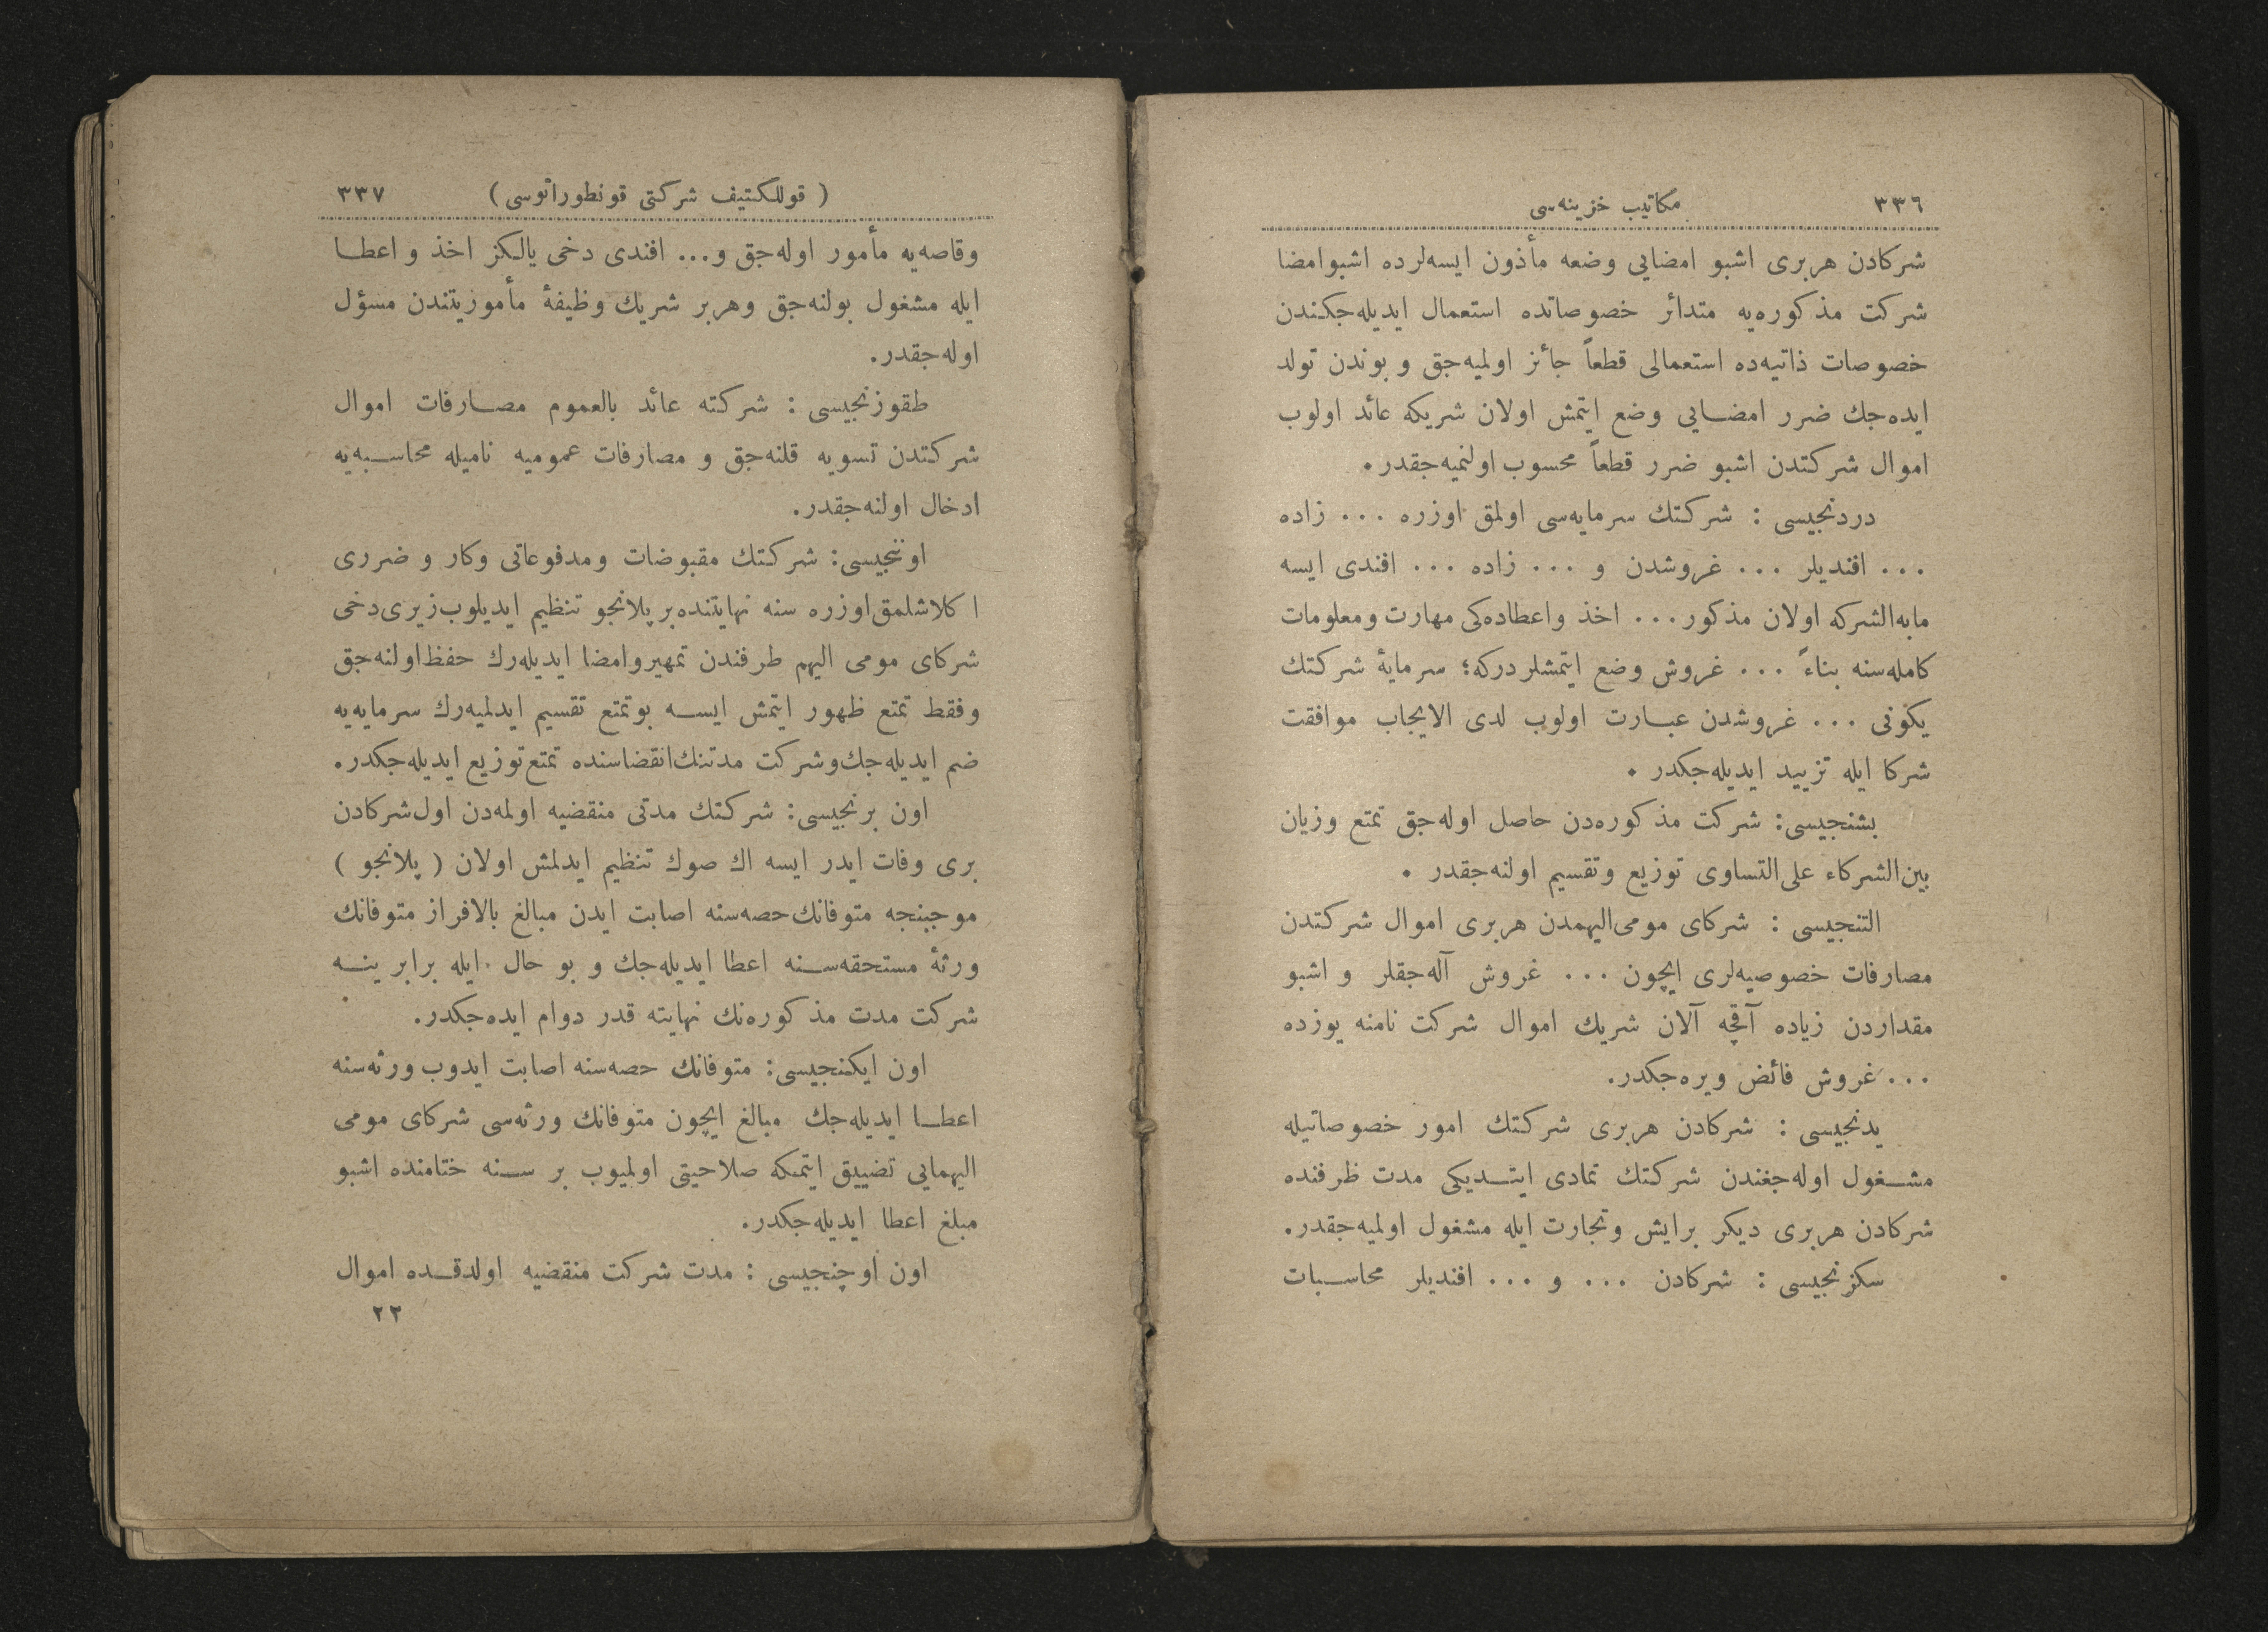 ٣٣٦ مكاتيب خزينه‌سى
شركادن هربرى اشبو امضايى وضعه مأذون ايسه‌لرده اشبوامضا
شركت مذكوره‌يه متدائر خصوصاتده استعمال ايديله‌جكندن
خصوصات ذاتيه‌ده استعمالى قطعاً جائز اولميه‌جق و بوندن تولد
ايده‌جك ضرر امضايى وضع ايتمش اولان شريكه عائد اولوب
اموال شركتدن اشبو ضرر قطعاً محسوب اولنميه‌جقدر.
دردنجيسى : شركتك سرمايه‌سى اولمق اوزره ... زاده
... افنديلر ... غروشدن و ... زاده ... افندى ايسه
مابه‌الشركه اولان مذكور... اخذ واعطاده‌كى مهارت ومعلومات
كامله‌سنه بناءً ... غروش وضع ايتمشلردركه؛ سرمايهٔ شركتك
يكونى ... غروشدن عبارت اولوب لدى الايجاب موافقت
شركا ايله تزييد ايديله‌جكدر .
بشنجيسى: شركت مذكوره‌دن حاصل اوله‌جق تمتع وزيان
بين‌الشركاء على‌التساوى توزيع وتقسيم اولنه‌جقدر .
التنجيسى : شركاى مومى‌اليهمدن هربرى اموال شركتدن
مصارفات خصوصيه‌لرى ايچون ... غروش آله‌جقلر و اشبو
مقداردن زياده آقچه آلان شريك اموال شركت نامنه يوزده
... غروش فائض ويره‌جكدر.
يدنجيسى : شركادن هربرى شركتك امور خصوصاتيله
مشغول اوله‌جغندن شركتك تمادى ايتديكى مدت ظرفنده
شركادن هربرى ديكر برايش وتجارت ايله مشغول اولميه‌جقدر.
سكزنجيسى : شركادن ... و ... افنديلر محاسبات
( قوللكتيف شركتى قونطوراتوسى ) ٣٣٧
وقاصه‌يه مأمور اوله‌جق و... افندى دخى يالكز اخذ و اعطا
ايله مشغول بولنه‌جق وهربر شريك وظيفهٔ مأموريتندن مسؤل
اوله‌جقدر.
طقوزنجيسى : شركته عائد بالعموم مصارفات اموال
شركتدن تسويه قلنه‌جق و مصارفات عموميه ناميله محاسبه‌يه
ادخال اولنه‌جقدر.
اوننجيسى: شركتك مقبوضات ومدفوعاتى وكار و ضررى
اكلاشلمق اوزره سنه نهايتنده بر پلانجو تنظيم ايديلوب زيرى دخى
شركاى مومى اليهم طرفندن تمهير وامضا ايديله‌رك حفظ اولنه‌جق
وفقط تمتع ظهور ايتمش ايسه بوتمتع تقسيم ايدلميه‌رك سرمايه‌يه
ضم ايديله‌جك وشركت مدتنك انقضاسنده تمتع توزيع ايديله‌جكدر.
اون برنجيسى: شركتك مدتى منقضيه اولمه‌دن اول شركادن
برى وفات ايدر ايسه اك صوك تنظيم ايدلمش اولان ( پلانجو )
موجبنجه متوفانك حصه‌سنه اصابت ايدن مبالغ بالافراز متوفانك
ورثهٔ مستحقه‌سنه اعطا ايديله‌جك و بو حال ايله برابر ينه
شركت مدت مذكوره‌نك نهايته قدر دوام ايده‌جكدر.
اون ايكنجيسى: متوفانك حصه‌سنه اصابت ايدوب ورثه‌سنه
اعطا ايديله‌جك مبالغ ايچون متوفانك ورثه‌سى شركاى مومى
اليهمايى تضييق ايتمكه صلاحيتى اولميوب بر سنه ختامنده اشبو
مبلغ اعطا ايديله‌جكدر.
اون اوچنجيسى : مدت شركت منقضيه اولدقده اموال
٢٢